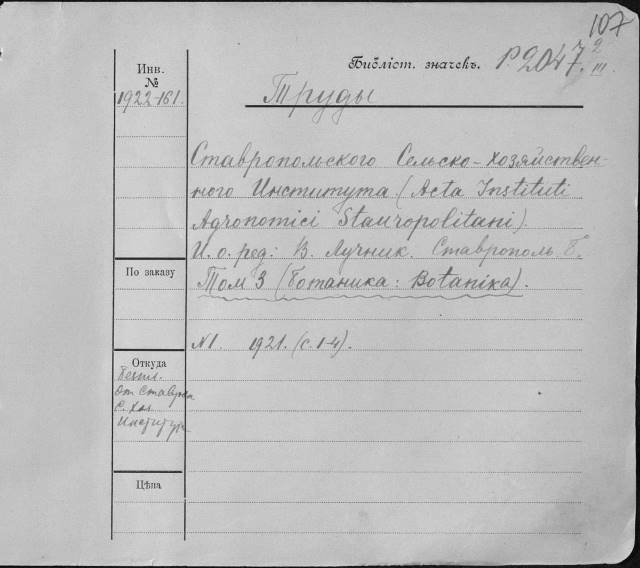 107
Инв.
№
1922-161.
Библіот. значекъ. Р.2047. 2/III.
Труды
Ставропольского Сельско-хозяйствен-
ного Института (Acta Instituti
Agronomici Stauropolitani).
И. о. ред: В. Лучник. Ставрополь
Том 3 (Ботаника: Botanika).
По заказу
N1. 1921. (с. 1-4).
Откуда
Безпл.
от Ставроп
С. Хоз
Института
Цѣна